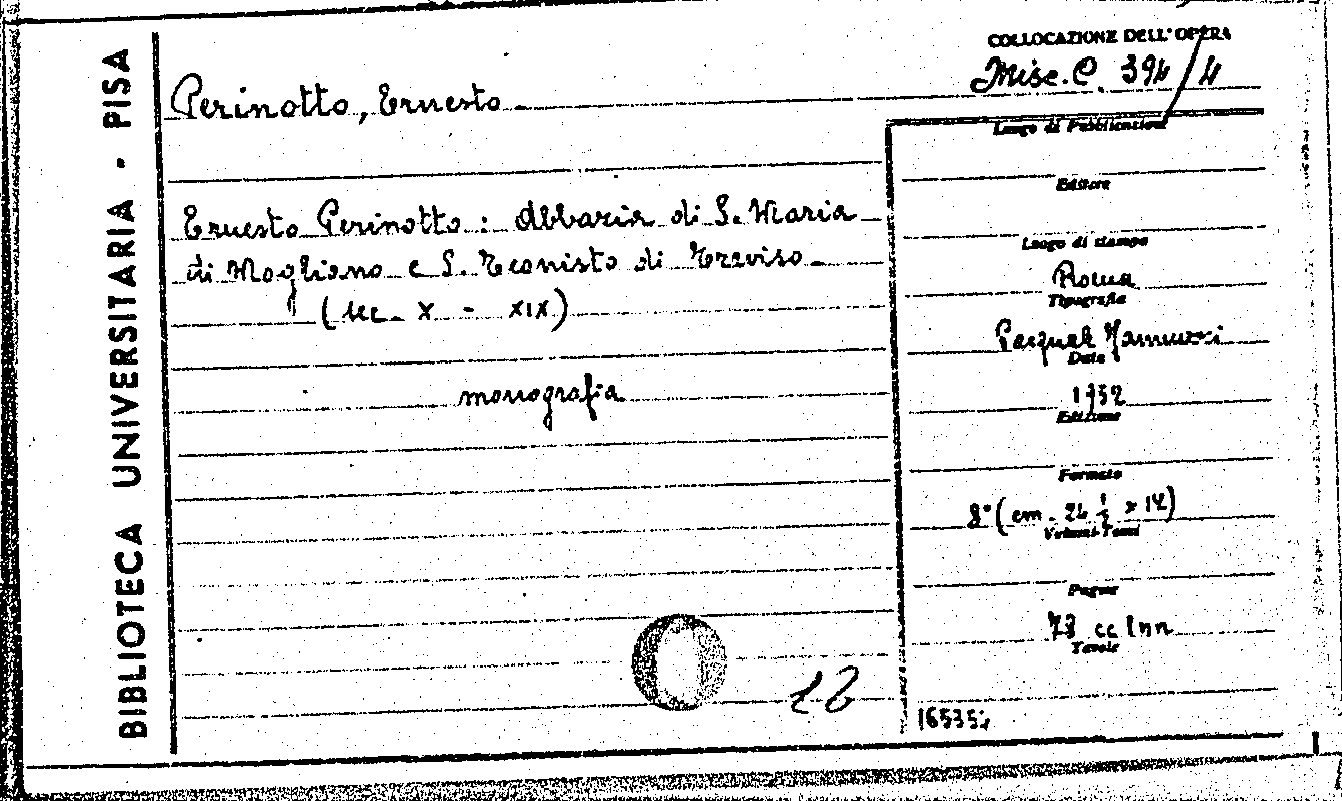 BIBLIOTECA UNIVERSITARIA - PISA
COLLOCAZIONE DELL'OPERA
Misc. C. 394/4
Perinotto, Ernesto -
Ernesto Perinotto: Abbazia di S. Maria
di Mogliano e S. Teonisto di Treviso -
(sec. X - XIX)
monografia
Luogo di Pubblicazione
Editore
Luogo di stampa
Roma
Tipografia
Data
Edizione
Formato
8° (cm. 24 ½ x 14)
Volumi-Tomi
Pagine
73 cc Inn
Tavole